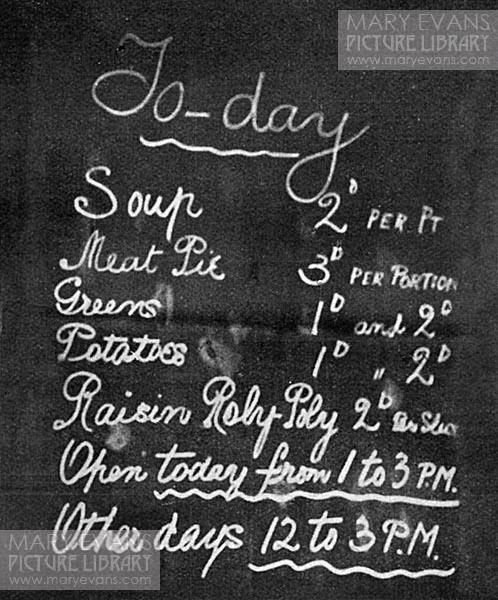 MARY EVANS
PICTURE LIBRARY
www.maryevans.com
To-day
Soup 2D PER PT
Meat Pie 3D PER PORTION
Greens 1D and 2D
Potatoes 1D " 2D
Raisin Roly Poly 2D Per Slice
Open today from 1 to 3 P.M.
Other days 12 to 3 P.M.
MARY EVANS
PICTURE LIBRARY
www.maryevans.com